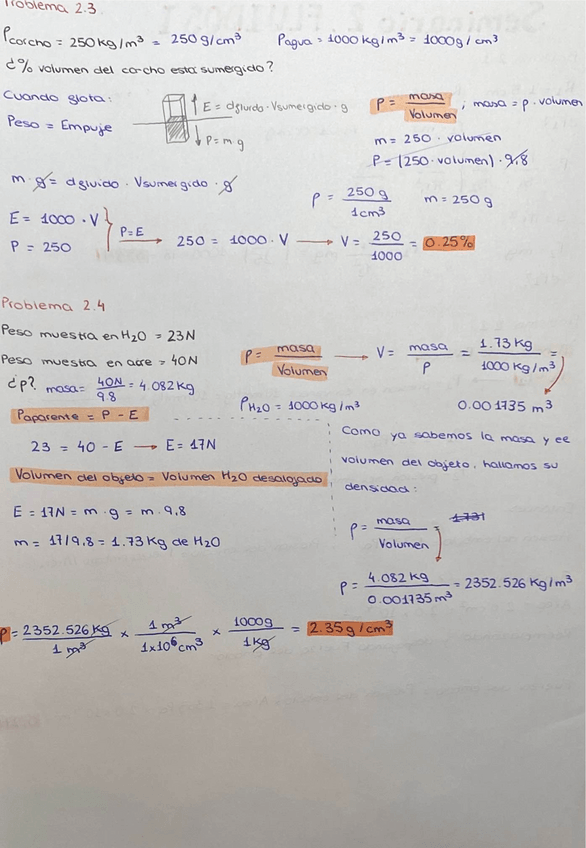 Problema 2.3
ρcorcho = 250 kg/m³ = 250 g/cm³ ρagua = 1000 kg/m³ = 1000 g/cm³
¿% volumen del corcho esta sumergido?
Cuando flota:
Peso = Empuje
E = dfluido · Vsumergido · g
P = m g
ρ = masa / Volumen ; masa = ρ · volumen
m = 250 · volumen
P = (250 · volumen) · 9,8
m · g = dfluido · Vsumergido · g
ρ = 250 g / 1 cm³ m = 250 g
E = 1000 · V
P = 250
P = E → 250 = 1000 · V → V = 250 / 1000 = 0.25%
Problema 2.4
Peso muestra en H₂O = 23N
Peso muestra en aire = 40N
¿ρ? masa = 40N / 9.8 = 4.082 kg
Paparente = P - E
23 = 40 - E → E = 17N
Volumen del objeto = Volumen H₂O desalojado
E = 17N = m · g = m · 9,8
m = 17/9,8 = 1.73 Kg de H₂O
ρ = masa / Volumen → V = masa / ρ = 1.73 Kg / 1000 Kg/m³ =
ρH₂O = 1000 Kg/m³ 0.001735 m³
Como ya sabemos la masa y el
volumen del objeto, hallamos su
densidad:
ρ = masa / Volumen = 1731
ρ = 4.082 kg / 0.001735 m³ = 2352.526 Kg/m³
ρ = 2352.526 Kg / 1 m³ × 1 m³ / 1x10⁶ cm³ × 1000g / 1 Kg = 2.35 g/cm³